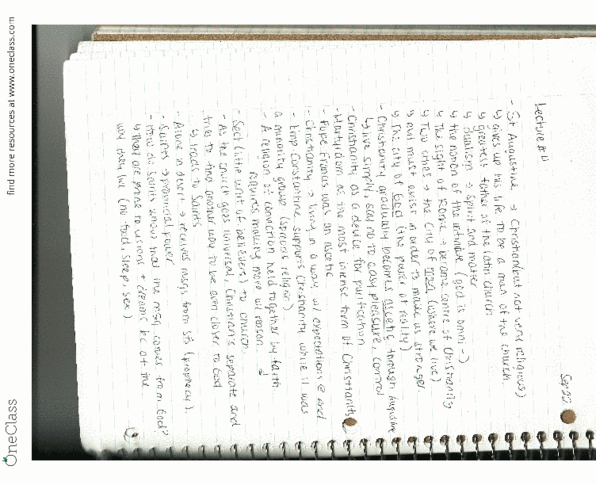 Lecture # 11
Sep 20
- St Augustine → Christian (but not very religious)
↳ gives up his life to be a man of the church
↳ greatest father of the latin church
↳ dualism → spirit and matter
↳ the notion of the infinite (god is omni-~)
↳ The sight of Rome → became centre of Christianity
↳ Two cities → the City of (where we live)
↳ evil must exist in order to make us stronger
↳ The city of God (the power of reality)
- Christianity gradually becomes ascetic through Augustine
↳ live simply, say no to easy pleasure, control
- Christianity as a device for purification
- Martyrdom as the most intense form of Christianity
- Pope Francis was an ascetic
- Christianity → living in a way w/ expectations @ end
- Emp Constantine supports Christianity while it was
a minority group (serious religion)
- A religion of conviction held together by faith
requires nothing more w/ reason
- Sect (little unit of believers) to church
- As the church goes universal, Christian's separate and
tries to find another way to be even closer to God
↳ leads to Saints
- Alone in desert → receives msgs from (prophecy)
- Saints → provincial power
- How do saints know that the msg comes from God?
↳ They are prone to visions + dreams bc of the
way they live (no food, sleep, sex)
find more resources at www.oneclass.com
OneClass